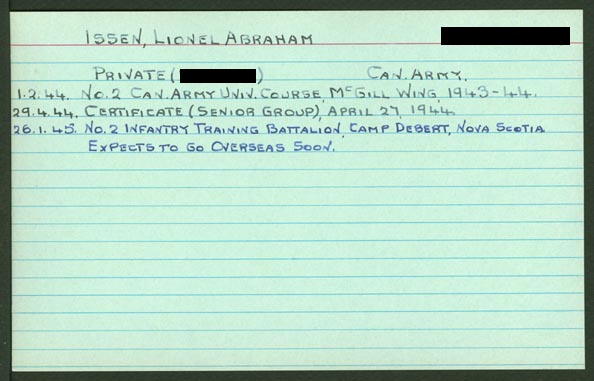 ISSEN, LIONEL ABRAHAM
PRIVATE ( ) CAN. ARMY.
1.2.44. NO.2 CAN. ARMY UNIV. COURSE, MCGILL WING, 1943-44.
29.4.44. CERTIFICATE (SENIOR GROUP), APRIL 27, 1944.
26.1.45. NO.2 INFANTRY TRAINING BATTALION, CAMP DEBERT, NOVA SCOTIA
EXPECTS TO GO OVERSEAS SOON.